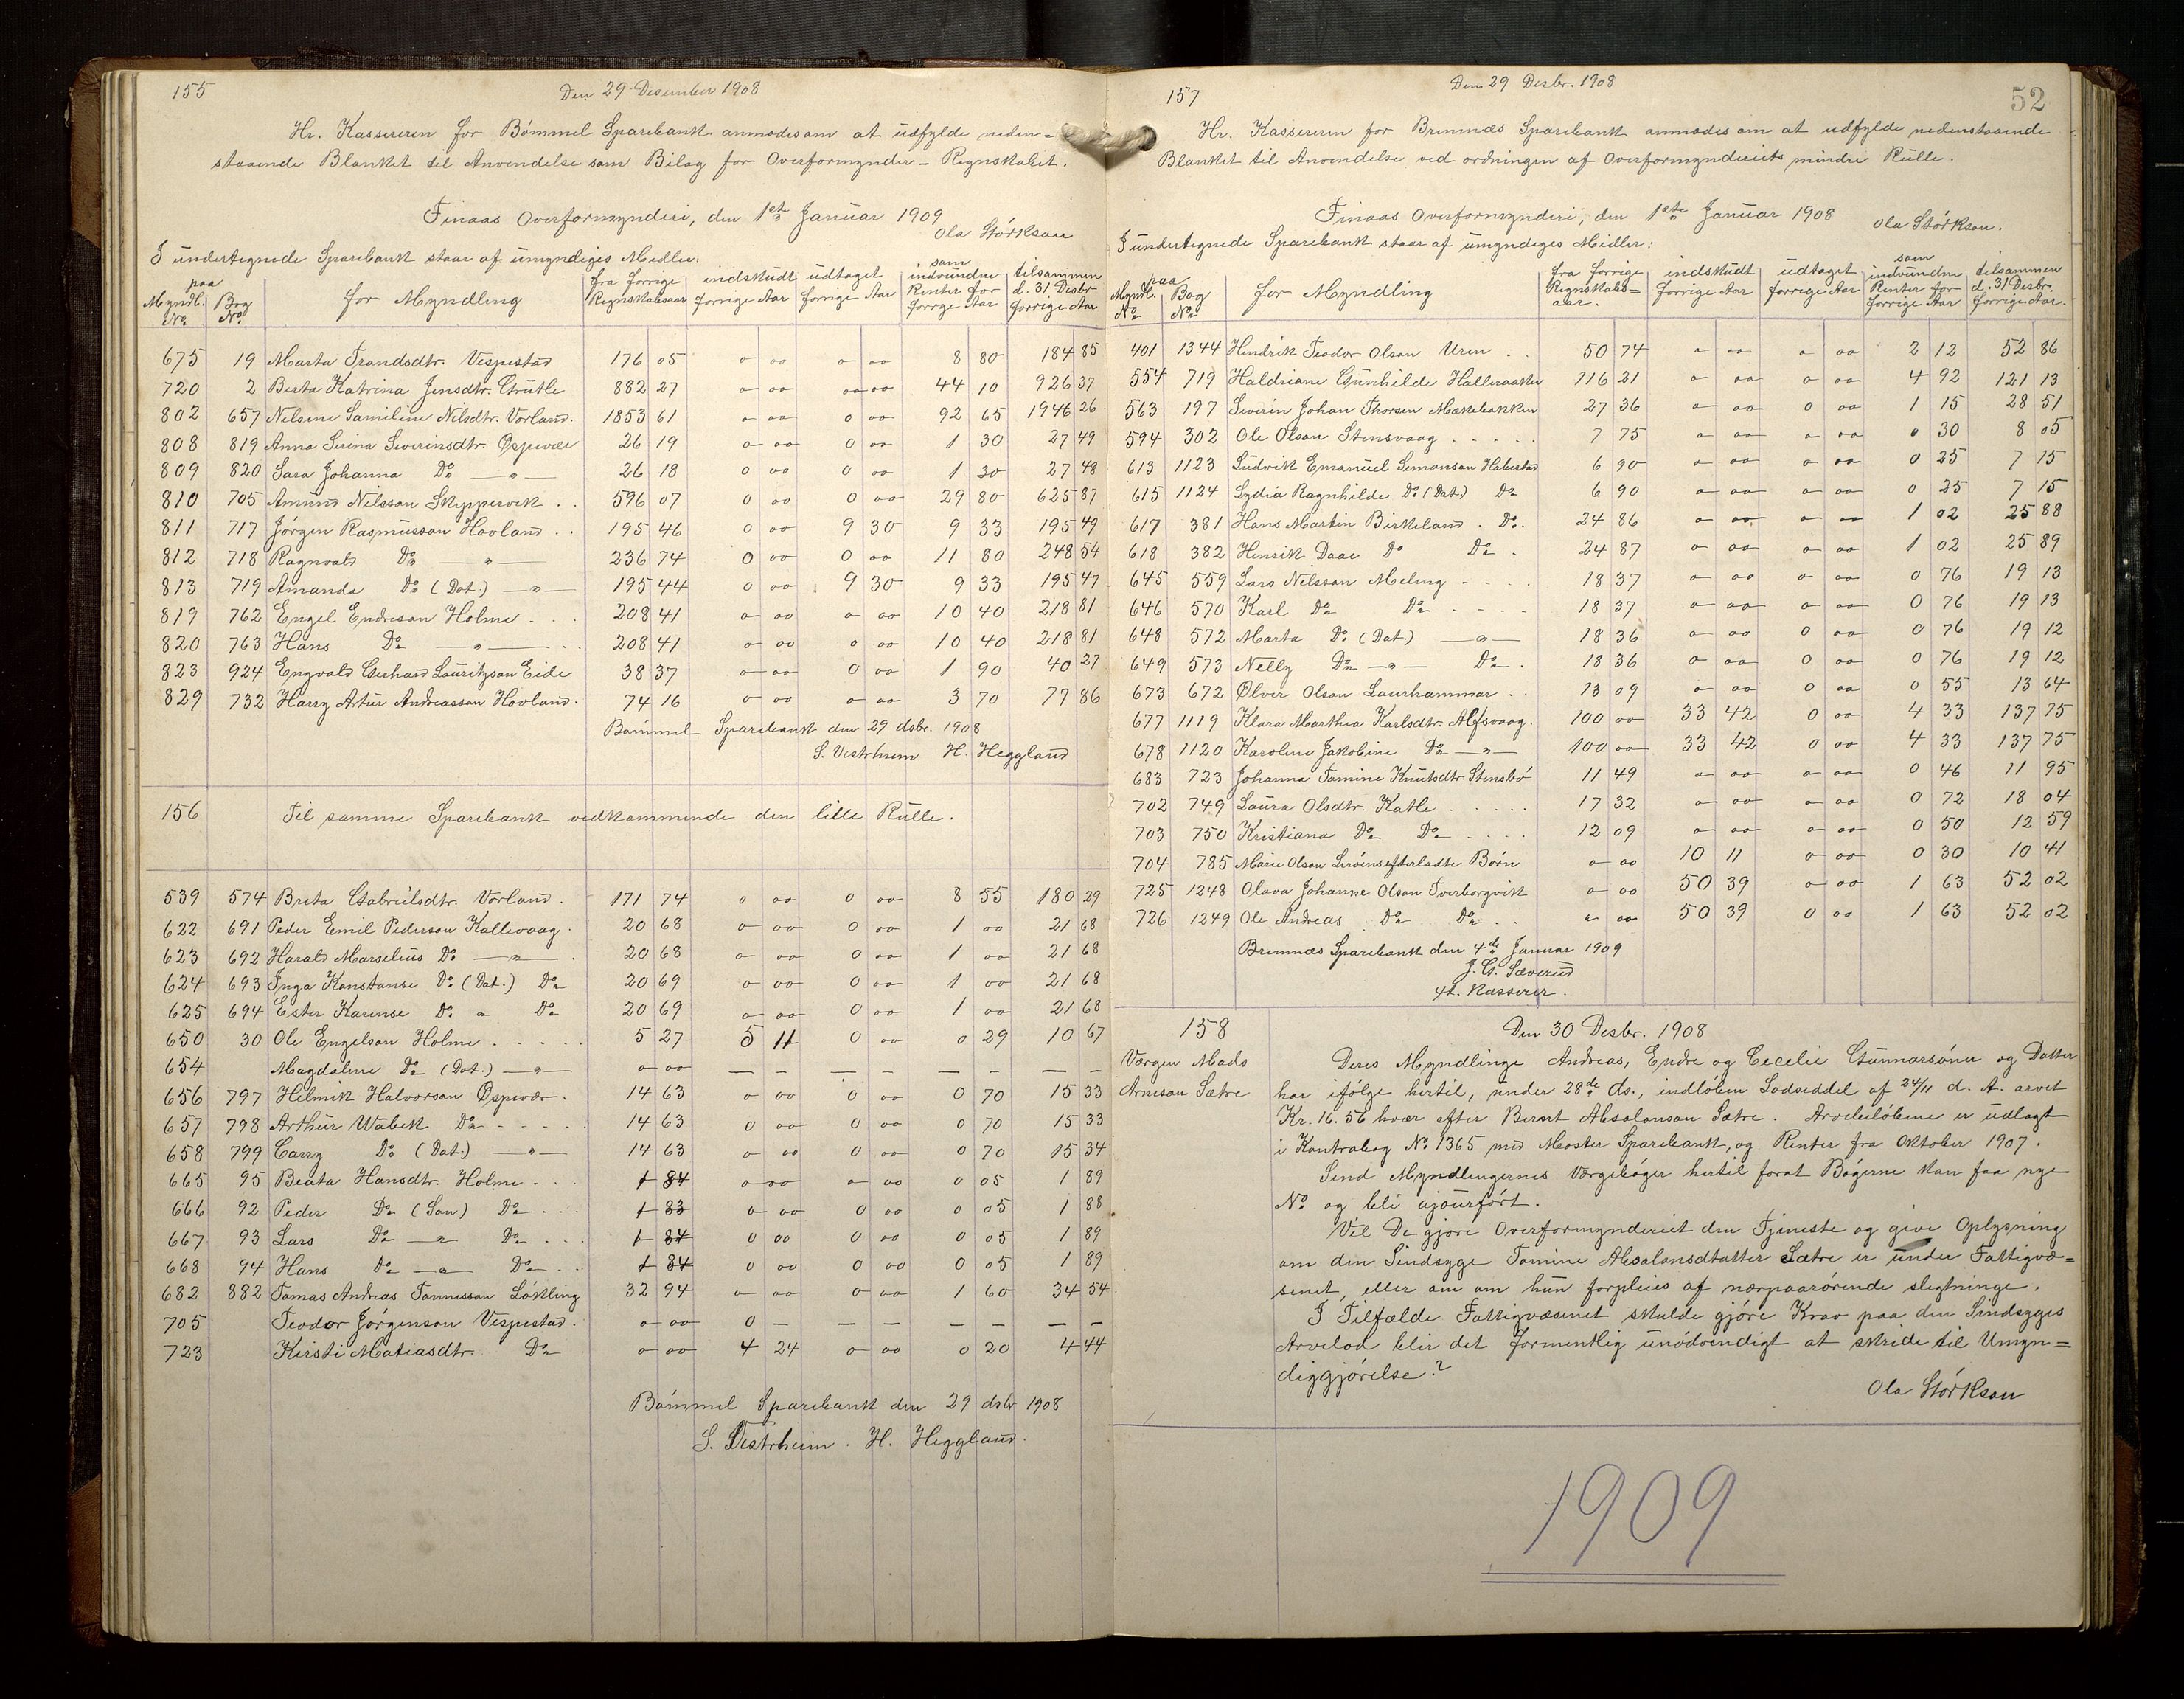 155
Den 29 Desember 1908
Hr. Kassereren for Bömmel Sparebank anmodes om at udfylde neden-
staaende Blanket til Anvendelse som Bilag for Overformynder-Regnskabet.
Finaas Overformynderi, den 1ste Januar 1909
Ola Störkson
I undertegnede Sparebank staar af umyndiges Midler:
paa Myndl. No | Bog No | for Myndling | fra forrige Regnskabsaar | indskudt forrige Aar | udtaget forrige Aar | som indvundne Renter for forrige Aar | tilsammen d. 31 Desbr forrige Aar
675 19 Marta Trandsdtr. Vespestad 176 05 0 00 0 00 8 80 184 85
720 2 Berta Katrina Jensdtr. Grutle 882 27 0 00 00 00 44 10 926 37
802 657 Nelsine Samiline Nilsdtr. Vorland. 1853 61 0 00 0 00 92 65 1946 26
808 819 Anna Serina Severinsdtr. Øspevær 26 19 0 00 0 00 1 30 27 49
809 820 Sara Johanna Do — " — 26 18 0 00 0 00 1 30 27 48
810 705 Amund Nilsson Skeppervik . . 596 07 0 00 0 00 29 80 625 87
811 717 Jörgen Rasmusson Hovland . . 195 46 0 00 9 30 9 33 195 49
812 718 Ragnvald Do — " — 236 74 0 00 0 00 11 80 248 54
813 719 Amanda Do (Dat.) — " — 195 44 0 00 9 30 9 33 195 47
819 762 Engel Endreson Holme . . . 208 41 0 00 0 00 10 40 218 81
820 763 Hans Do — " — . . 208 41 0 00 0 00 10 40 218 81
823 924 Engvald Gerhard Lauritzson Eide 38 37 0 00 0 00 1 90 40 27
829 732 Harry Artur Andreasson Hovland. 74 16 0 00 0 00 3 70 77 86
Bömmel Sparebank den 29 dsbr. 1908
S. Vestrheim H. Heggland
156
Til samme Sparebank vedkommende den lille Rulle.
539 574 Brita Gabrielsdtr. Vorland . 171 74 0 00 0 00 8 55 180 29
622 691 Peder Emil Pederson Kallevaag . 20 68 0 00 0 00 1 00 21 68
623 692 Harald Marselius Do — " — . 20 68 0 00 0 00 1 00 21 68
624 693 Inga Konstanse Do (Dat.) Do 20 69 0 00 0 00 1 00 21 68
625 694 Ester Karense Do " Do 20 69 0 00 0 00 1 00 21 68
650 30 Ole Engelson Holme . . . . . 5 27 5 11 0 00 0 29 10 67
654 Magdalene Do (Dat.) — " — 0 00 — — — — — — — —
656 797 Helmik Halvorson Øspevær . 14 63 0 00 0 00 0 70 15 33
657 798 Arthur Wabek Do - - - - - 14 63 0 00 0 00 0 70 15 33
658 799 Carry Do (Dat.) — " — 14 63 0 00 0 00 0 70 15 34
665 95 Beata Hansdtr. Holme . . . 1 84 0 00 0 00 0 05 1 89
666 92 Peder Do (Søn) Do . . . 1 83 0 00 0 00 0 05 1 88
667 93 Lars Do — " — Do . . . 1 84 0 00 0 00 0 05 1 89
668 94 Hans Do — " — Do . . 1 84 0 00 0 00 0 05 1 89
682 882 Tomas Andreas Tonnesson Lökling 32 94 0 00 0 00 1 60 34 54
705 Teodor Jörgenson Vespestad . 0 00 0 — — — — — — —
723 Kirsti Matiasdtr. Do 0 00 4 24 0 00 0 20 4 44
Bömmel Sparebank den 29 dsbr 1908
S. Vestrheim . H. Heggland.
157
Den 29 Desbr. 1908
52
Hr. Kassereren for Bremnæs Sparebank anmodes om at udfylde nedenstaaende
Blanket til Anvendelse ved ordningen af Overformynderiets mindre Rulle.
Finaas Overformynderi, den 1ste Januar 1908
Ola Störkson.
I undertegnede Sparebank staar af umyndiges Midler:
paa Myndl. No | Bog No | for Myndling | fra forrige Regnskabs=aar. | indskudt forrige Aar | udtaget forrige Aar | som indvundne Renter for forrige Aar | tilsammen d. 31 Desbr. forrige Aar.
401 1344 Hendrik Teodor Olson Uren . . 50 74 0 00 0 00 2 12 52 86
554 719 Haldriane Gunhilde Halleraaker 116 21 0 00 0 00 4 92 121 13
563 197 Severin Johan Thorsen Mækebakken 27 36 0 00 0 00 1 15 28 51
594 302 Ole Olson Stensvaag . . . . . 7 75 0 00 0 00 0 30 8 05
613 1123 Ludvik Emanuel Simonson Habestad 6 90 0 00 0 00 0 25 7 15
615 1124 Lydia Ragnhilde Do (Dat.) Do 6 90 0 00 0 00 0 25 7 15
617 381 Hans Martin Birkeland . Do. 24 86 0 00 0 00 1 02 25 88
618 382 Henrik Daae Do Do . 24 87 0 00 0 00 1 02 25 89
645 559 Lars Nilsson Meling - . . . 18 37 0 00 0 00 0 76 19 13
646 570 Karl Do Do - - - - 18 37 0 00 0 00 0 76 19 13
648 572 Marta Do (Dat.) — " — 18 36 0 00 0 00 0 76 19 12
649 573 Nelly Do — " — Do . 18 36 0 00 0 00 0 76 19 12
673 672 Ølver Olson Laurhammar . . 13 09 0 00 0 00 0 55 13 64
677 1119 Klara Marthea Karlsdtr. Alfsvaag. 100 00 33 42 0 00 4 33 137 75
678 1120 Karoline Jakobine Do — " — 100 00 33 42 0 00 4 33 137 75
683 723 Johanna Tomine Knutsdtr. Stensbö 11 49 0 00 0 00 0 46 11 95
702 749 Laura Olsdtr. Katle . . . . . 17 32 0 00 0 00 0 72 18 04
703 750 Kristiana Do Do - . . . 12 09 0 00 0 00 0 50 12 59
704 785 Marie Olson efterladte Börn 0 00 10 11 0 00 0 30 10 41
725 1248 Olava Johanne Olson Tverborgvik 0 00 50 39 0 00 1 63 52 02
726 1249 Ole Andreas Do Do . . 0 00 50 39 0 00 1 63 52 02
Bremnæs Sparebank den 4de Januar 1909
J. G. Sæverud
st. Kasserer.
158
Den 30 Desbr. 1908
Værgen Mads
Arneson Sætre
Deres Myndlinge Andreas, Endre og Cecelie Gunnarsöner og Datter
har ifölge hertil, under 28de ds., indlöben Lodseddel af 24/11 d. A. arvet
Kr. 16.56 hvær efter Bernt Absalonson Sætre. Arvebelöbene er udlagt
i Kontrabog No. 1365 med Moster Sparebank, og Renter fra Oktober 1907.
Send Myndlingernes Værgeböger hertil forat Bögerne kan faa nye
No og bli ajourfört.
Vil De gjöre Overformynderiet den Tjeneste og give Oplysning
om den Sindsyge Tomine Absalonsdtatter Sætre er under Fattigvæ=
senet, eller om om hun forpleies af nærpaarörende slegtninge.
I Tilfælde Fattigvæsenet skulde gjöre Krav paa den Sindsyges
Arvelod blir det formentlig unödvendigt at skride til Umyn=
diggjörelse?
Ola Störkson
1909